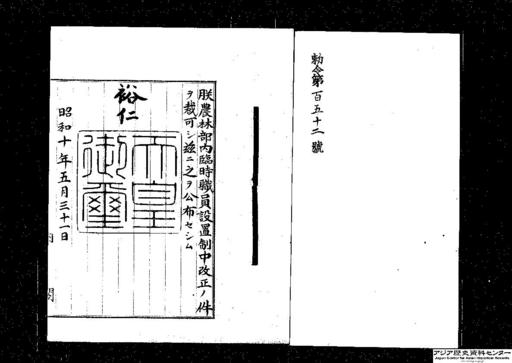 勅令第百五十二號
朕農林部內臨時職員設置制中改正ノ件
ヲ裁可シ玆ニ之ヲ公布セシム
裕仁
天皇
御璽
昭和十年五月三十一日
內閣
アジア歴史資料センター
Japan Center for Asian Historical Records